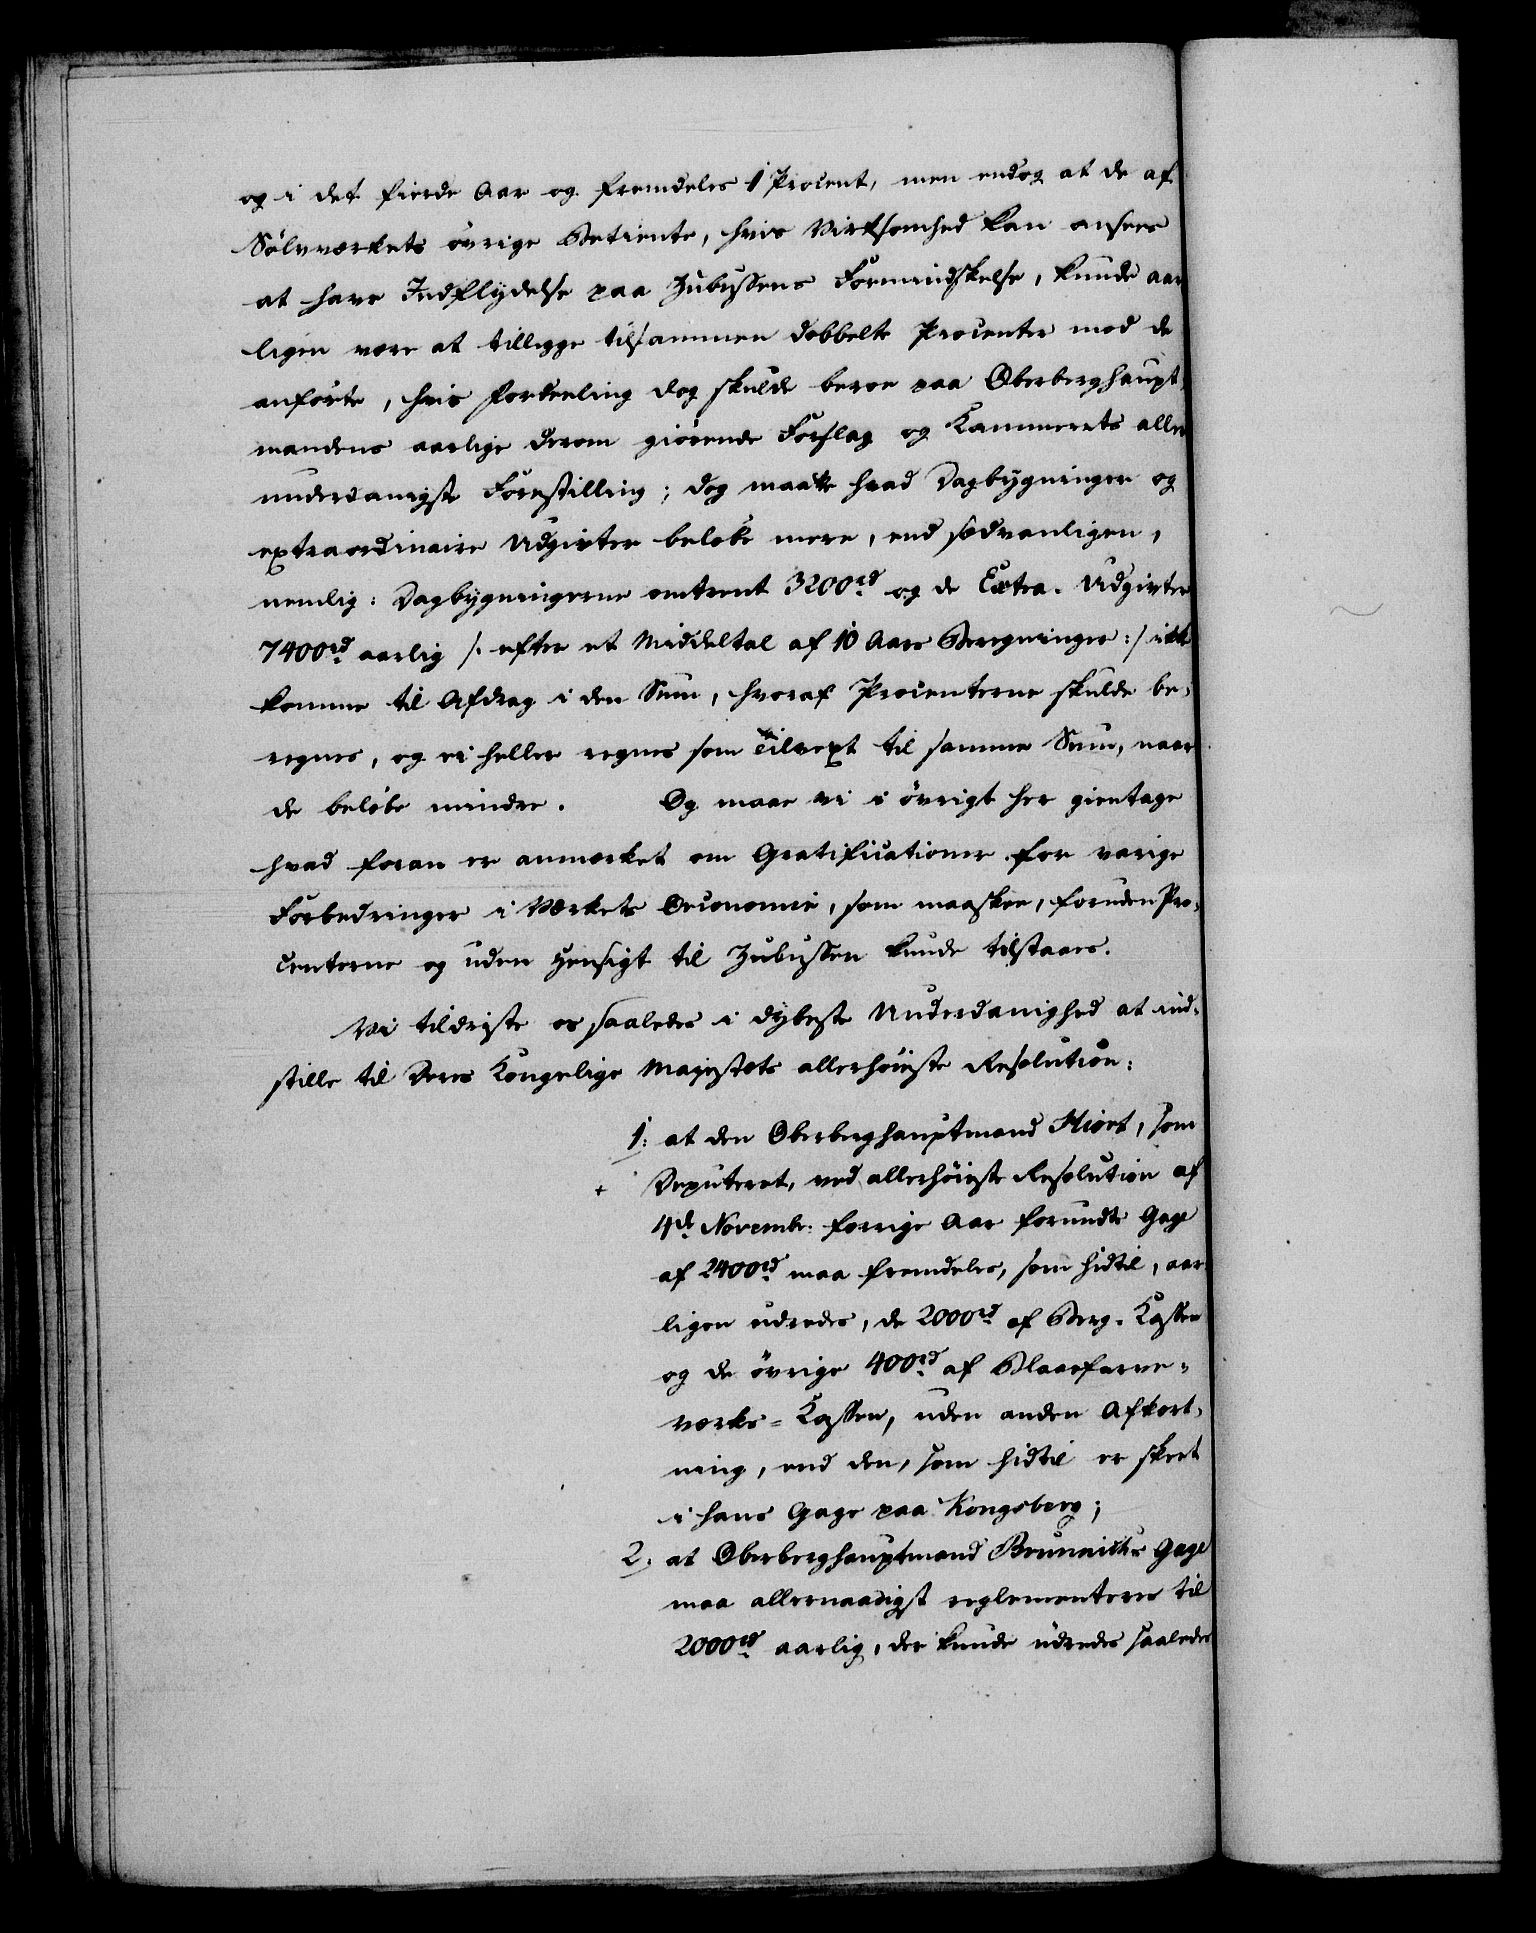 og i det fierde Aar og fremdeles 1 Procent, men endog at de af
Sölvværkets övrige Betiente, hvis Virksomhed kan ansees
at have Indflydelse paa Zubussens Formindskelse, kunde aar
ligen være at tillegge tilsammen dobbelte Procenter mod de
anförte, hvis Fordeeling dog skulde beroe paa Oberberghaupt,
mandens aarlige derom giörende Forslag og Kammerets aller
underdanigste Forestilling; dog maatte hvad Dagbygninger og
extraordinaire Udgivter belöbe mere, end sædvanligen,
nemlig: Dagbygningerne omtrent 3200rd og de Extra. Udgivter
7400rd aarlig /: efter et Middeltal af 10 Aars Beregninger :/ ikke
komme til Afdrag i den Sum, hvoraf Procenterne skulde be,
regnes, og ei heller regnes som Tilvext til samme Sum, naar
de belöbe mindre. Og maae vi i övrigt her gientage
hvad foran er anmærket om Gratificationer for varige
Forbedringer i Værkets Oeconomie, som maaskee, foruden Pro,
centerne og uden Hensigt til Zubussen kunde tilstaaes.
Vi tildriste os saaledes i dybeste Underdanighed at ind,
stille til Deres Kongelige Majestets allerhöieste Resolution:
1: at den Oberberghauptmand Hiort, som
+ Deputeret, ved allerhöieste Resolution af
4de Novembr: forrige Aar forundte Gage
af 2400rd maa fremdeles, som hidtil, aar,
ligen udredes, de 2000rd af Berg-Kassen
og de övrige 400rd af Blaafarve-
værks-Kassen, uden anden Afkort,
ning, end den, som hidtil er skeet
i hans Gage paa Kongsberg;
2. at Oberberghauptmand Brunniches Gage
maa allernaadigst reglementeres til
2000rd aarlig, der kunde udredes saaledes